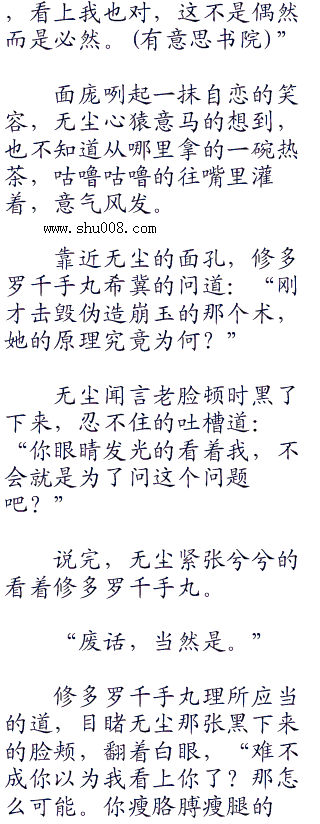 ，看上我也对，这不是偶然
而是必然。(有意思书院)”
面庞咧起一抹自恋的笑
容，无尘心猿意马的想到，
也不知道从哪里拿的一碗热
茶，咕噜咕噜的往嘴里灌
着，意气风发。
www.shu008.com
靠近无尘的面孔，修多
罗千手丸希冀的问道：“刚
才击毁伪造崩玉的那个术，
她的原理究竟为何？”
无尘闻言老脸顿时黑了
下来，忍不住的吐槽道：
“你眼睛发光的看着我，不
会就是为了问这个问题
吧？”
说完，无尘紧张兮兮的
看着修多罗千手丸。
“废话，当然是。”
修多罗千手丸理所应当
的道，目睹无尘那张黑下来
的脸颊，翻着白眼，“难不
成你以为我看上你了？那怎
么可能。你瘦胳膊瘦腿的